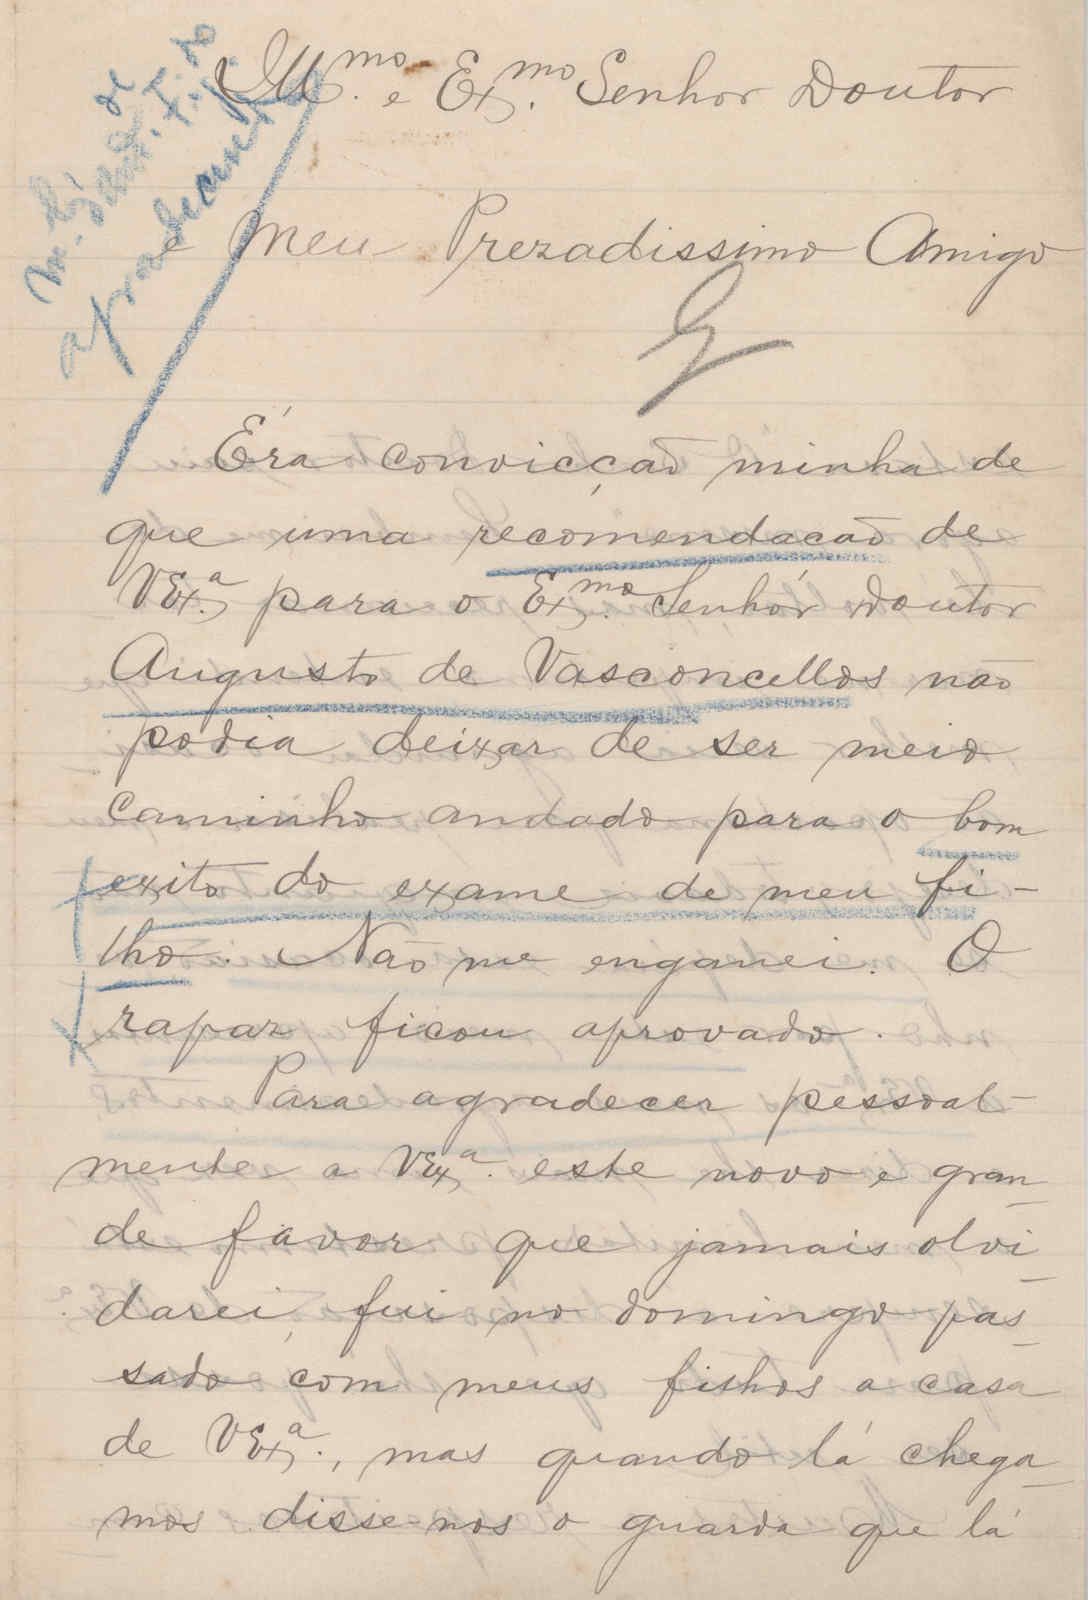 Ill.mo e Ex.mo Senhor Doutor
e Meu Prezadissimo Amigo
agradecendo
Éra convicção minha de
que uma recomendacão de
VEx.a para o Ex.mo Senhor Doutor
Augusto de Vasconcellos não
podia deixar de ser meio
caminho andado para o bom
exito do exame de meu fi-
lho. Não me enganei. O
rapaz ficou aprovado.
Para agradecer pessoal-
mente a VEx.a este novo e gran-
de favor que jamais olvi-
darei, fui no domingo pas-
sado com meus filhos a casa
de VEx.a, mas quando lá chega-
mos disse-nos o guarda que lá